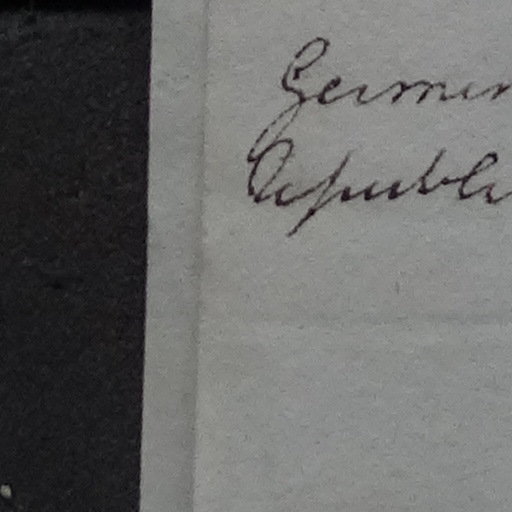 Germin
Republi